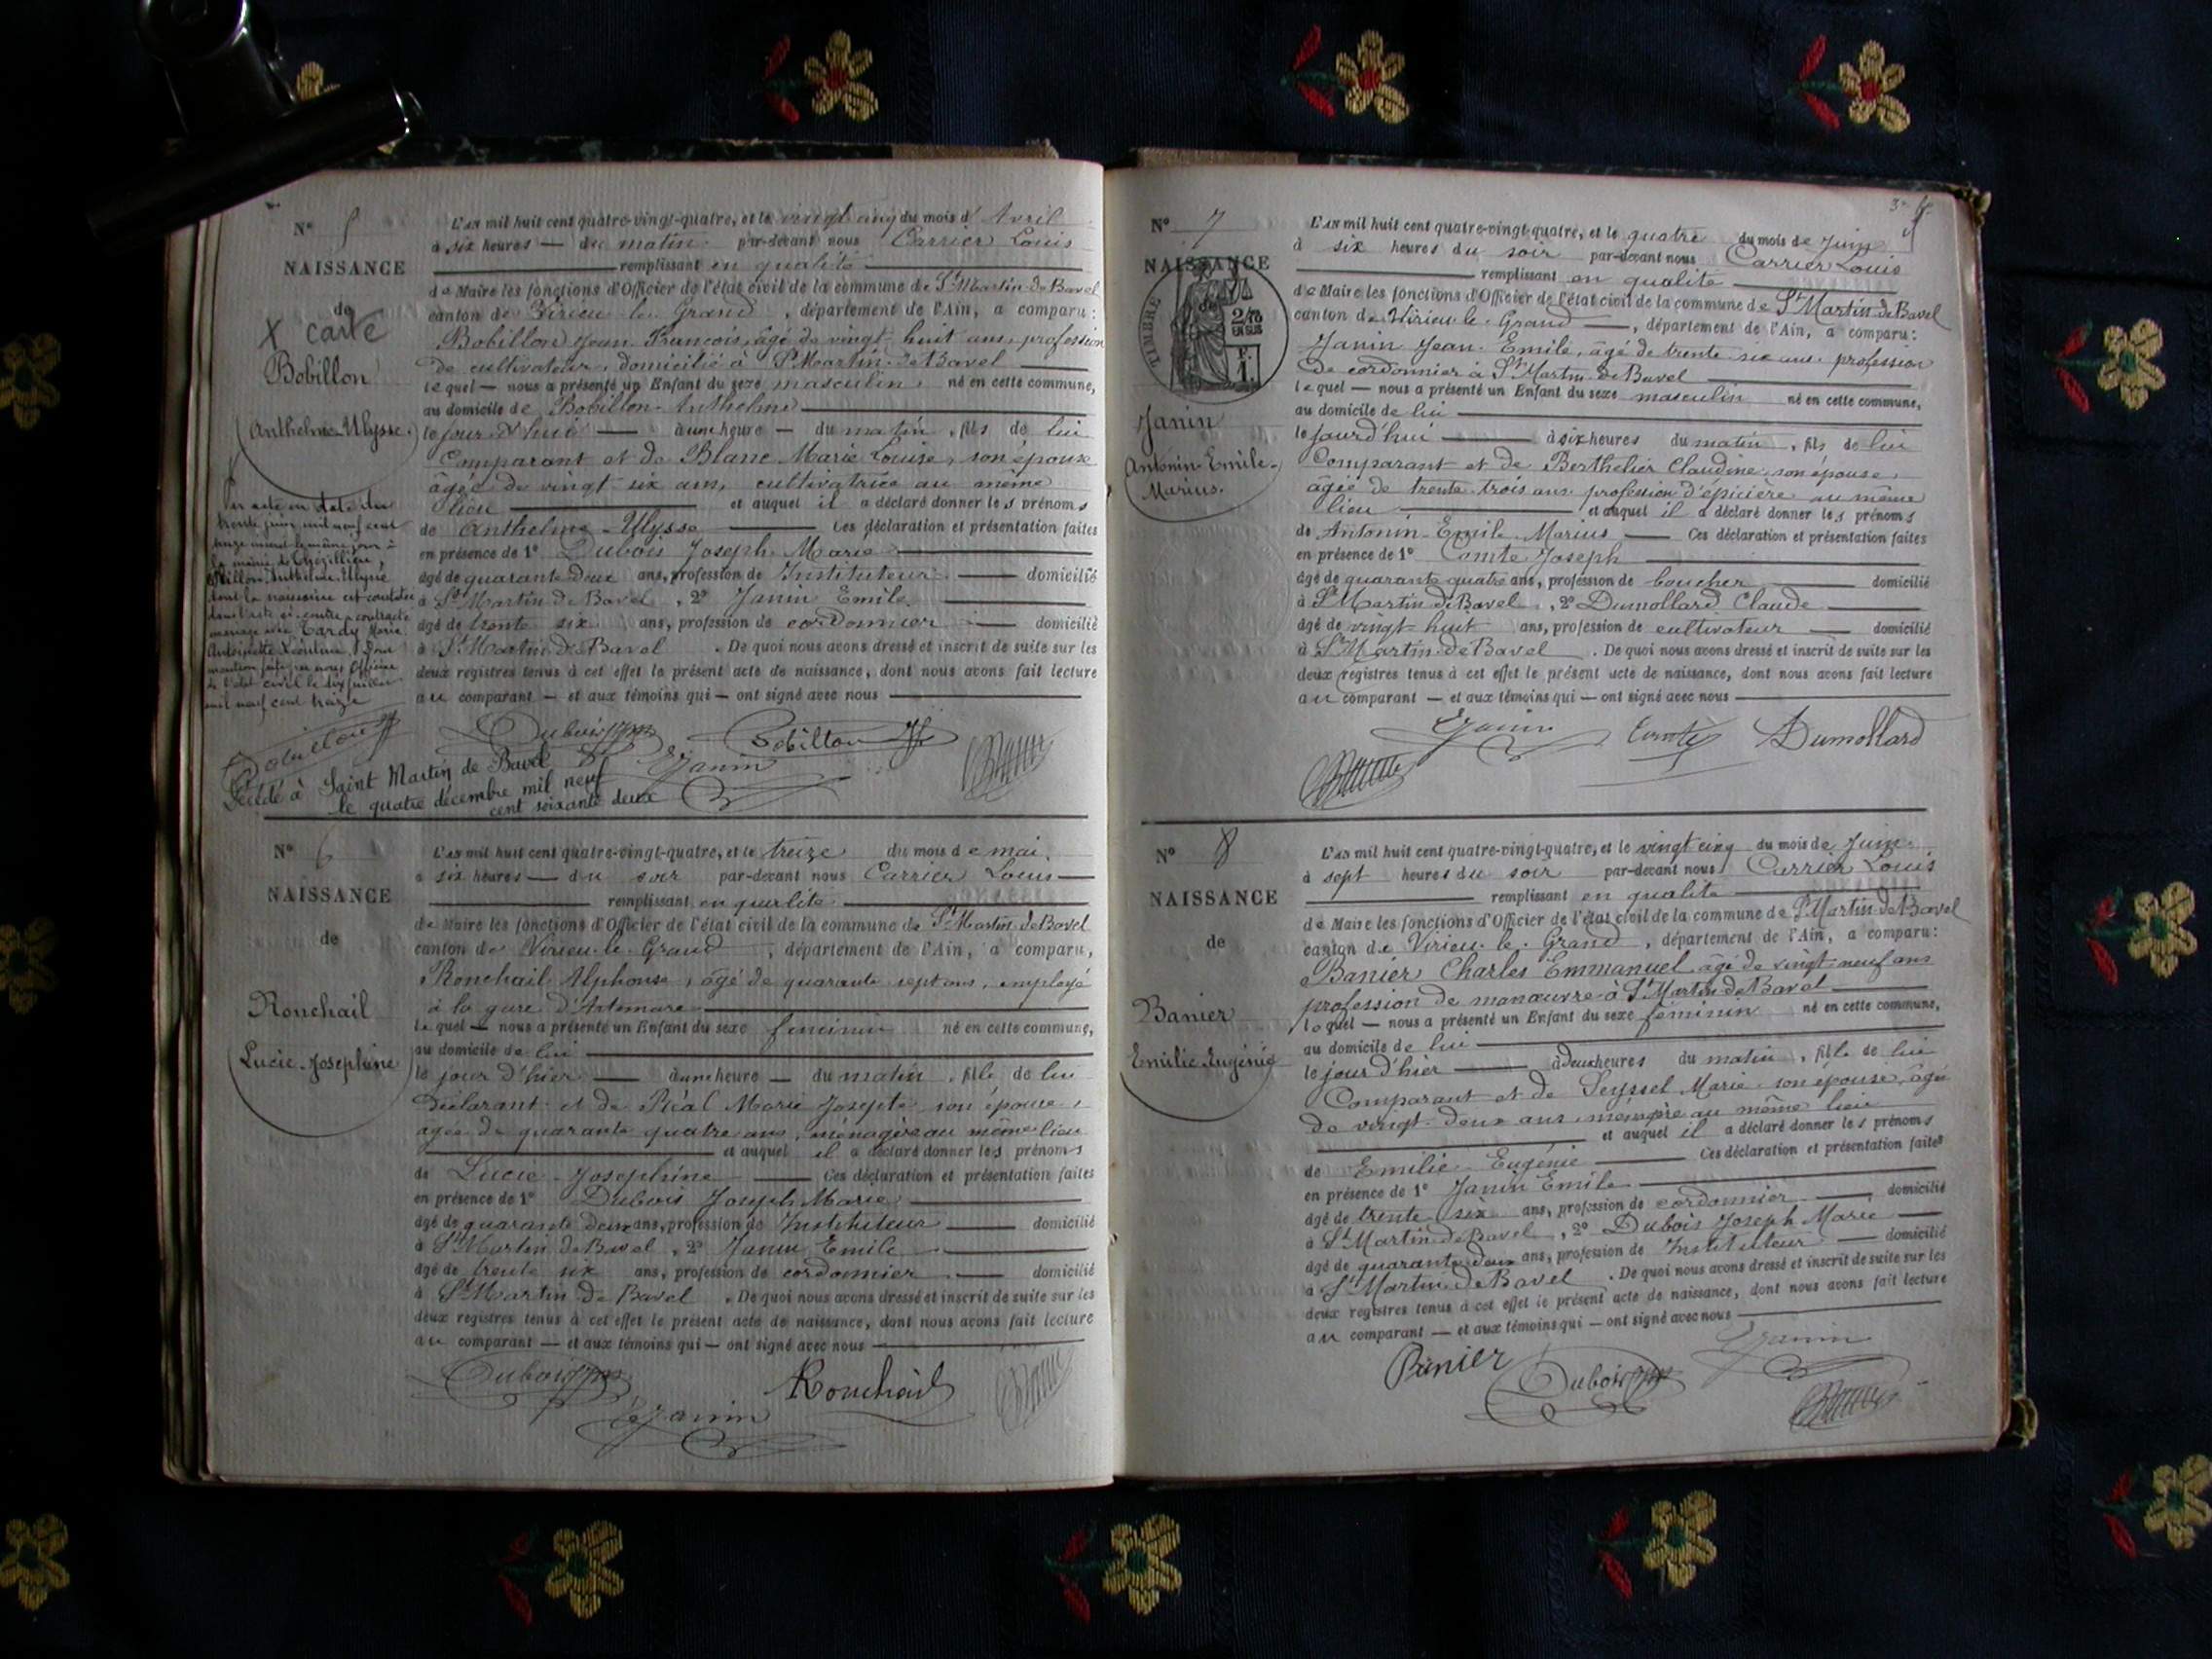 N° 5
NAISSANCE
de
X carte
Bobillon
Anthelme-Ulysse.
Par acte en date du
trente juin mil neuf cent
treize inscrit le même jour à
la mairie de
Bobillon Anthelme Ulysse
dont la naissance est constatée
dans l'acte ci-contre a contracté
mariage avec Tardy Marie
Antoinette Léontine. Dont
mention faite par nous Officier
de l'état civil le dix juillet
mil neuf cent treize
Bobillon
Décédé à Saint Martin de Bavel
le quatre décembre mil neuf
cent soixante deux
L'AN mil huit cent quatre-vingt-quatre, et le vingt cinq du mois d'Avril
à six heures — du matin par-devant nous Carrier Louis
remplissant en qualité
de Maire les fonctions d'Officier de l'état civil de la commune de St Martin de Bavel
canton de Virieu le Grand, département de l'Ain, a comparu :
Bobillon Jean François, âgé de vingt huit ans, profession
de cultivateur, domicilié à St Martin de Bavel
lequel — nous a présenté un Enfant du sexe masculin, né en cette commune,
au domicile de Bobillon Anthelme
le jour d'hui — à une heure — du matin, fils de lui
Comparant et de Blanc Marie Louise, son épouse
âgée de vingt six ans, cultivatrice au même
lieu et auquel il a déclaré donner les prénoms
de Anthelme-Ulysse — Ces déclaration et présentation faites
en présence de 1° Dubois Joseph Marie
âgé de quarante deux ans, profession de Instituteur — domicilié
à St Martin de Bavel, 2° Janin Emile
âgé de trente six ans, profession de cordonnier — domicilié
à St Martin de Bavel. De quoi nous avons dressé et inscrit de suite sur les
deux registres tenus à cet effet le présent acte de naissance, dont nous avons fait lecture
au comparant — et aux témoins qui — ont signé avec nous
Dubois Bobillon
E Janin
N° 6
NAISSANCE
de
Ronchail
Lucie-Joséphine
L'AN mil huit cent quatre-vingt-quatre, et le treize du mois de mai.
à six heures — du soir par-devant nous Carrier Louis —
remplissant en qualité
de Maire les fonctions d'Officier de l'état civil de la commune de St Martin de Bavel
canton de Virieu-le-Grand, département de l'Ain, a comparu,
Ronchail Alphonse, âgé de quarante sept ans, employé
à la gare d'Artemare
lequel — nous a présenté un Enfant du sexe féminin né en cette commune,
au domicile de lui
le jour d'hier — à une heure — du matin, fille de lui
Déclarant et de Réal Marie Josepte son épouse,
âgée de quarante quatre ans, ménagère au même lieu
et auquel il a déclaré donner les prénoms
de Lucie-Joséphine — Ces déclaration et présentation faites
en présence de 1° Dubois Joseph Marie
âgé de quarante deux ans, profession de Instituteur — domicilié
à St Martin de Bavel, 2° Janin Emile
âgé de trente six ans, profession de cordonnier — domicilié
à St Martin de Bavel. De quoi nous avons dressé et inscrit de suite sur les
deux registres tenus à cet effet le présent acte de naissance, dont nous avons fait lecture
au comparant — et aux témoins qui — ont signé avec nous
Dubois Ronchail
E Janin
N° 7
NAISSANCE
de
TIMBRE
2/10
EN SUS
F.
1.
Janin
Antonin-Emile-
Marius.
L'AN mil huit cent quatre-vingt-quatre, et le quatre du mois de Juin
à six heures du soir par-devant nous Carrier Louis
remplissant en qualité
de Maire les fonctions d'Officier de l'état civil de la commune de St Martin de Bavel
canton de Virieu le Grand —, département de l'Ain, a comparu :
Janin Jean Emile, âgé de trente six ans, profession
de cordonnier à St Martin de Bavel
lequel — nous a présenté un Enfant du sexe masculin né en cette commune,
au domicile de lui
le jourd'hui — à six heures du matin, fils de lui
Comparant et de Berthelier Claudine son épouse,
âgée de trente-trois ans profession d'épicière au même
lieu et auquel il a déclaré donner les prénoms
de Antonin-Emile-Marius — Ces déclaration et présentation faites
en présence de 1° Comte Joseph
âgé de quarante quatre ans, profession de boucher — domicilié
à St Martin de Bavel, 2° Dumollard Claude
âgé de vingt huit ans, profession de cultivateur — domicilié
à St Martin de Bavel. De quoi nous avons dressé et inscrit de suite sur les
deux registres tenus à cet effet le présent acte de naissance, dont nous avons fait lecture
au comparant — et aux témoins qui — ont signé avec nous
E Janin Comte Dumollard
N° 8
NAISSANCE
de
Banier
Emilie-Eugénie
L'AN mil huit cent quatre-vingt-quatre, et le vingt cinq du mois de Juin
à sept heures du soir par-devant nous Carrier Louis
remplissant en qualité
de Maire les fonctions d'Officier de l'état civil de la commune de St Martin de Bavel
canton de Virieu-le-Grand, département de l'Ain, a comparu :
Banier Charles Emmanuel âgé de vingt-neuf ans
profession de manœuvre à St Martin de Bavel
lequel — nous a présenté un Enfant du sexe féminin né en cette commune,
au domicile de lui
le jour d'hier — à deux heures du matin, fille de lui
Comparant et de Seyssel Marie son épouse, âgée
de vingt-deux ans ménagère au même lieu
et auquel il a déclaré donner les prénoms
de Emilie Eugénie — Ces déclaration et présentation faites
en présence de 1° Janin Emile
âgé de trente six ans, profession de cordonnier —, domicilié
à St Martin de Bavel, 2° Dubois Joseph Marie —
âgé de quarante deux ans, profession de Instituteur — domicilié
à St Martin de Bavel. De quoi nous avons dressé et inscrit de suite sur les
deux registres tenus à cet effet le présent acte de naissance, dont nous avons fait lecture
au comparant — et aux témoins qui — ont signé avec nous
Banier Dubois E Janin